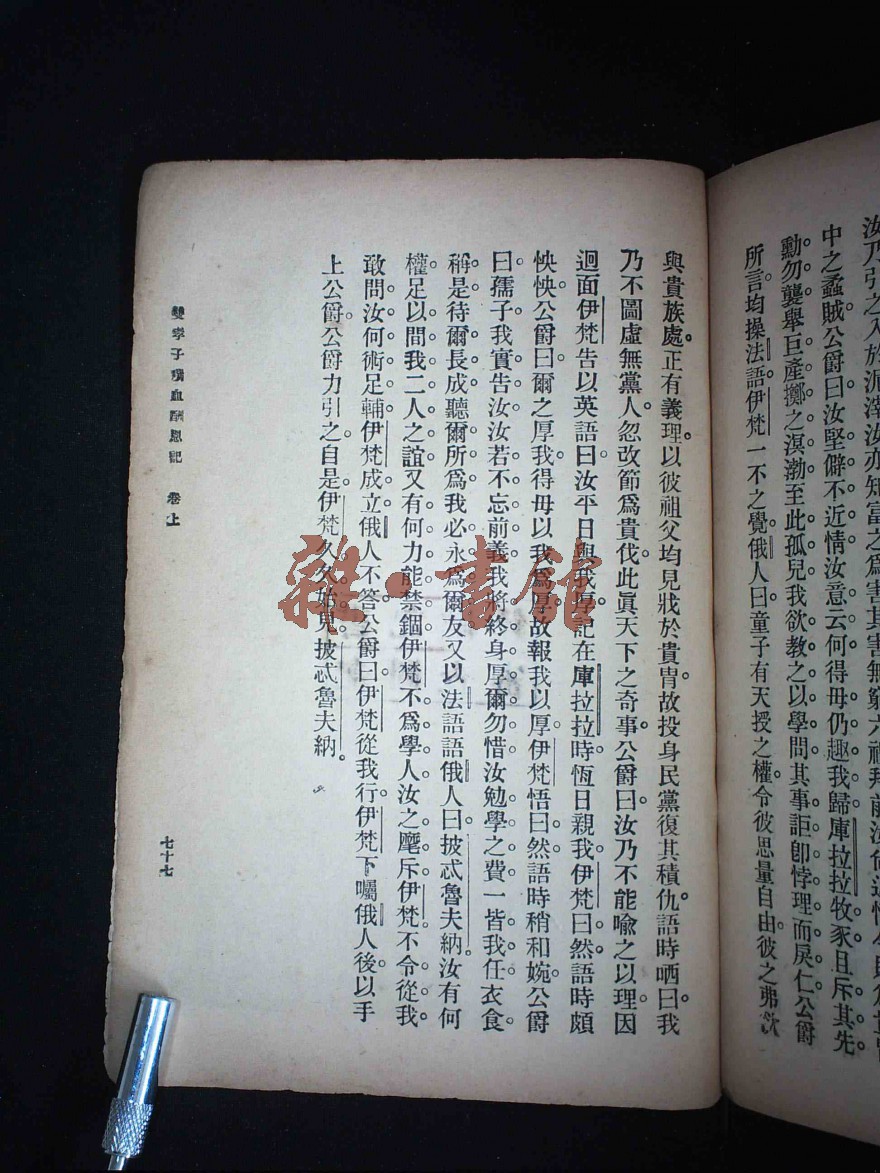 汝乃引之入於泥滓汝亦知富之爲害其害無窮六禮拜前
中之蟊賊公爵曰汝堅僻不近情汝意云何得毋仍趣我歸庫拉拉牧豕且斥其先
勳勿襲舉巨產擲之溟渤至此孤兒我欲教之以學問其事詎卽悖理而戾仁公爵
所言均操法語伊梵一不之覺俄人曰童子有天授之權令彼思量自由彼之弗汝
與貴族處正有義理以彼祖父均見戕於貴胄故投身民黨復其積仇語時哂曰我
乃不圖虛無黨人忽改節爲貴伐此眞天下之奇事公爵曰汝乃不能喩之以理因
迴面伊梵告以英語曰汝平日與我厚記在庫拉拉時恆日親我伊梵曰然語時頗
怏怏公爵曰爾之厚我得毋以我爲厚故報我以厚伊梵悟曰然語時稍和婉公爵
曰孺子我實告汝汝若不忘前義我將終身厚爾勿惜汝勉學之費一皆我任衣食
稱是待爾長成聽爾所爲我必永爲爾友又以法語語俄人曰披忒魯夫納汝有何
權足以間我二人之誼又有何力能禁錮伊梵不爲學人汝之麾斥伊梵不令從我
敢問汝何術足輔伊梵成立俄人不答公爵曰伊梵從我行伊梵下囑俄人後以手
上公爵公爵力引之自是伊梵久久始見披忒魯夫納
雙孝子噀血酬恩記 卷上
七十七
雜·書館